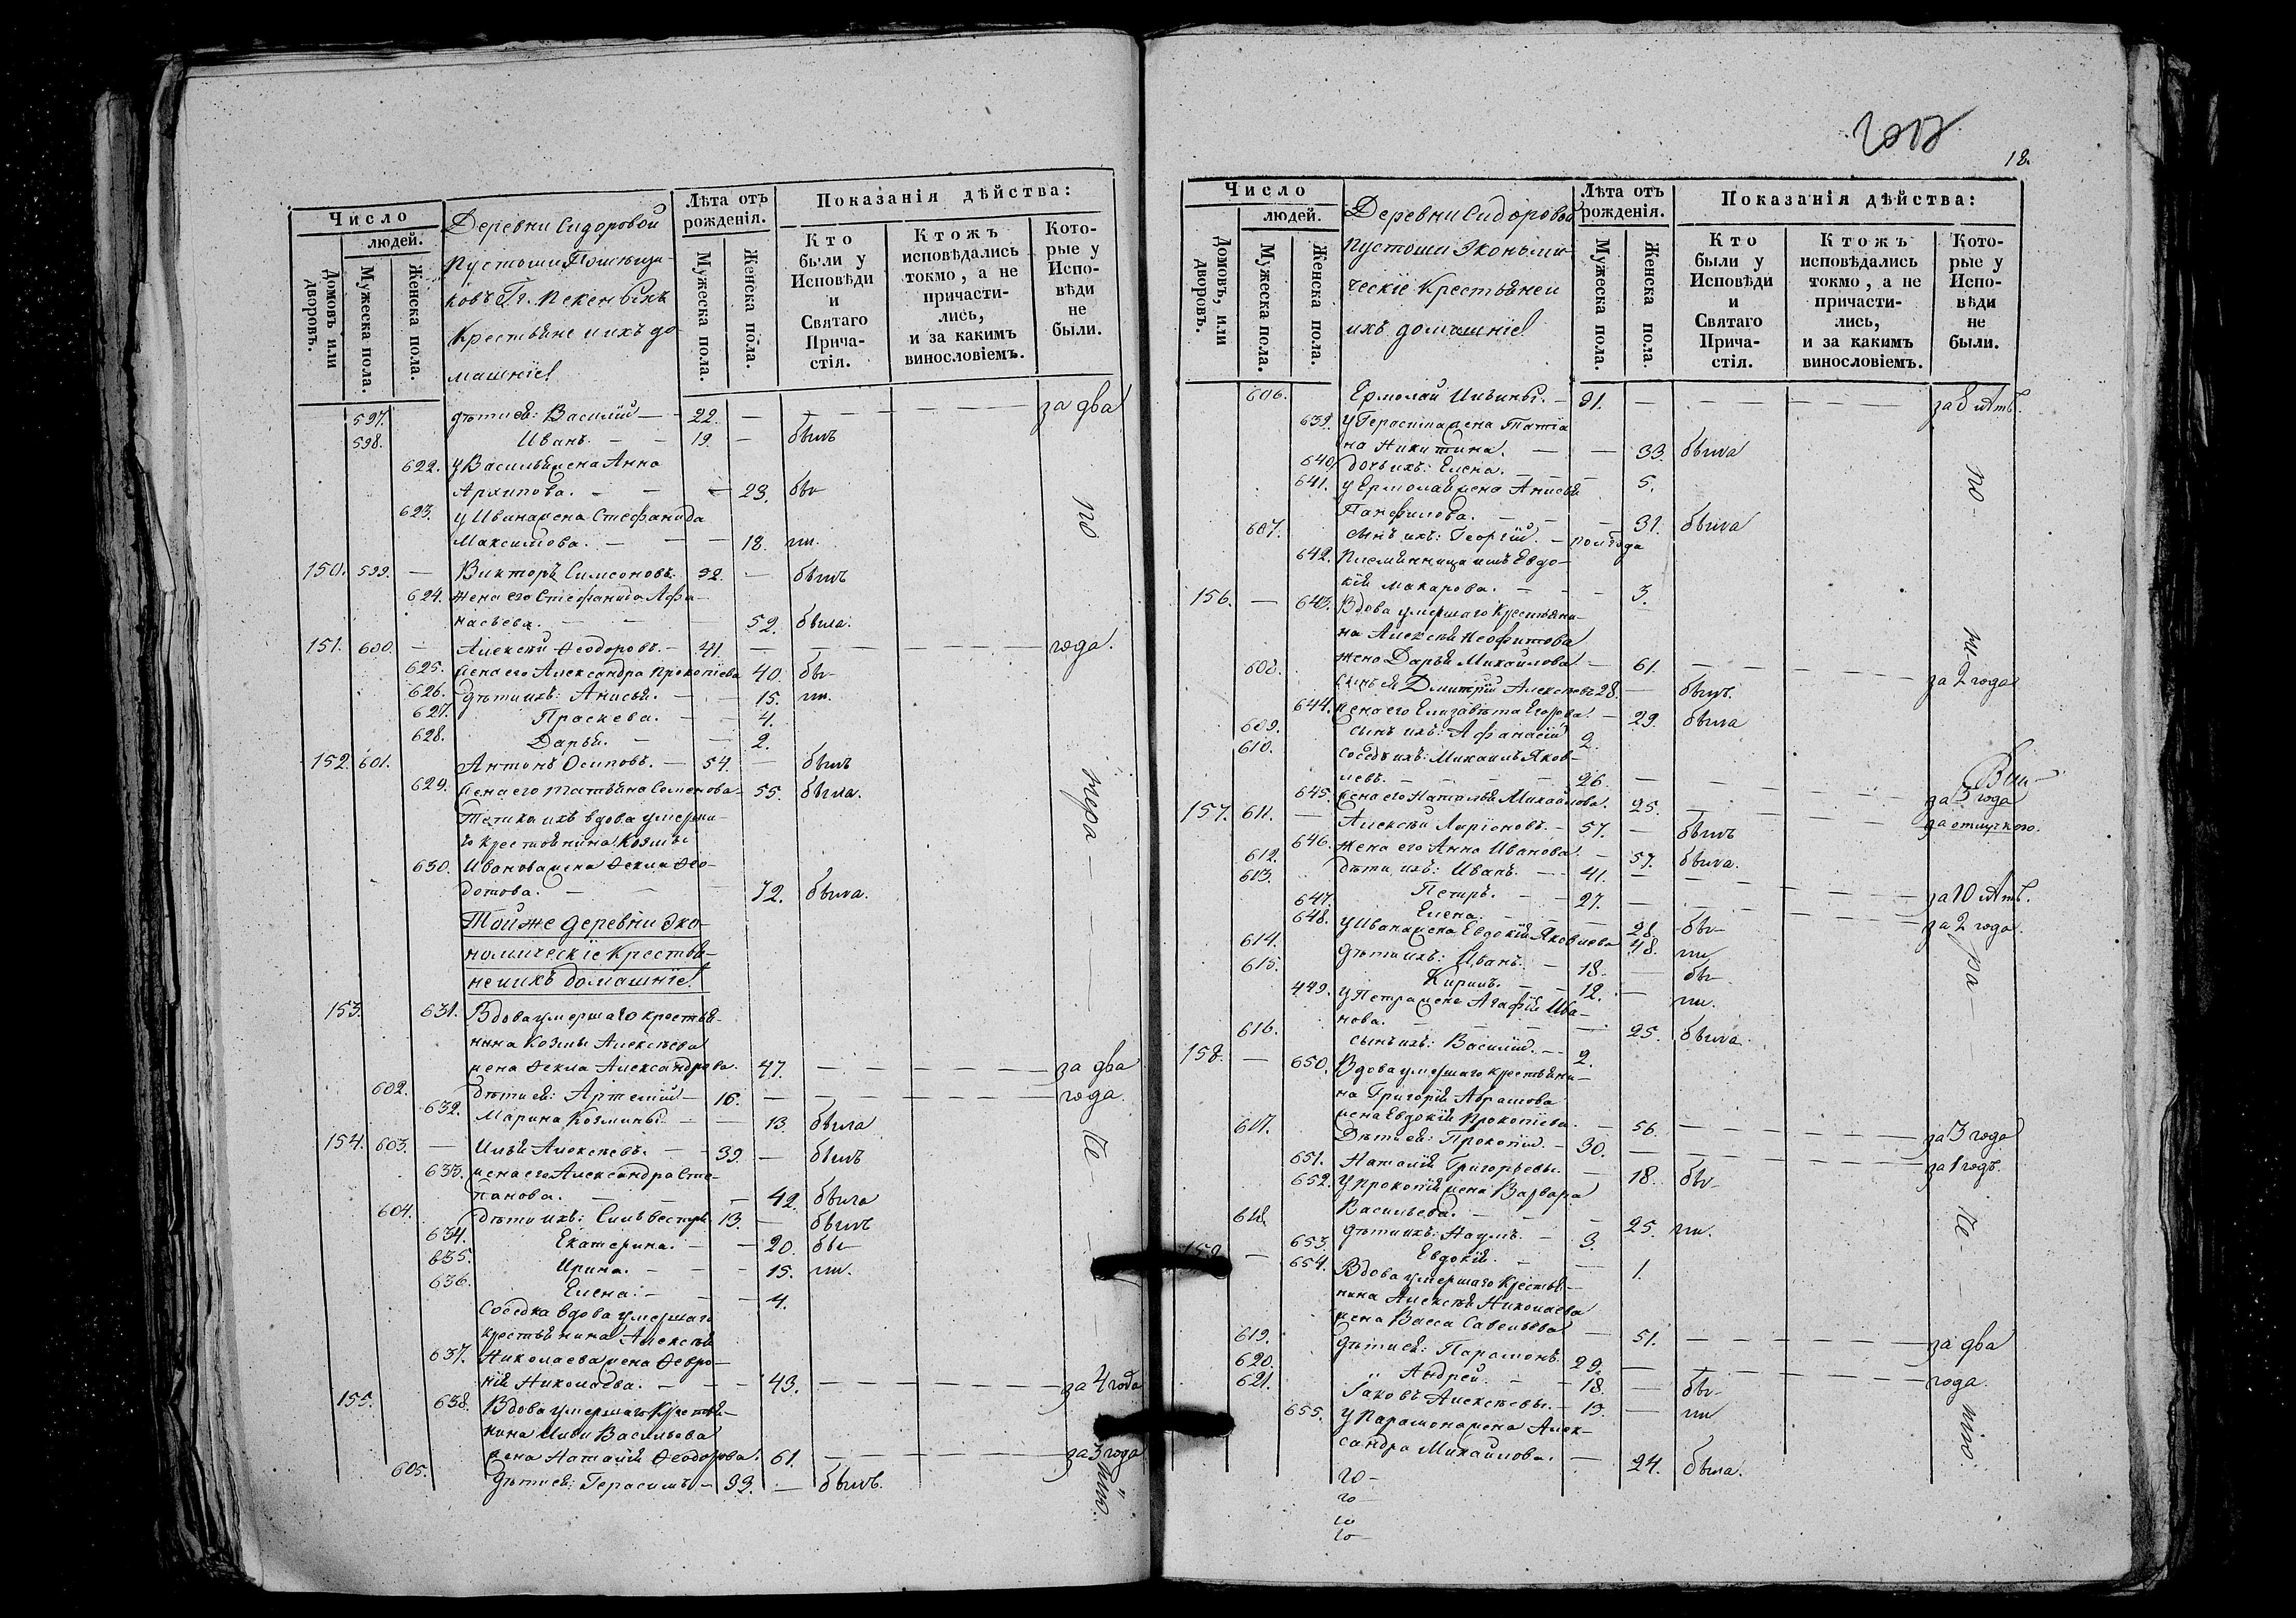 Число
людей.
Домовъ или дворовъ.
Мужеска пола.
Женска пола.
Деревни Сидоровой
Пустоши Помѣщи-
ковъ Гг.
Крестьяне и ихъ до
машніе
Лѣта отъ рожденія.
Мужеска пола.
Женска пола.
Показанія дѣйства:
Кто были у Исповѣди и Святаго Прича-стія.
Ктожъ исповѣдались токмо, а не причасти-лись, и за какимъ винословіемъ.
Кото-рые у Испо-вѣди не были.
597. дѣти ей: Василій — 22. — — — за два
598. Иванъ. — 19. — былъ
622. у Василья жена Анна
Архипова. — — 23. бы-
623. у Ивана жена Стефанида
Максимова. — — 18. ли.
150. 599. — Викторъ Симеоновъ. 52. — былъ
624. жена его Стефанида Афа-
насьева. — 52. была.
151. 600. — Алексѣй Ѳеодоровъ. — 41. — — — года.
625. жена его Александра Прокопіева 40. бы-
626. дѣти ихъ: Анисья. — 15. ли.
627. Праскева. — 4.
628. Дарья. — 2.
152. 601. Антонъ Осиповъ. — 54. — былъ
629. жена его Татьяна Семенова — 55. была.
Тетка ихъ вдова умерша-
го крестьянина Козмы
630. Иванова жена Ѳекла Ѳео-
дотова. — 72. была.
Той же деревни Эко-
номическіе Крестья-
не и ихъ домашніе
153. 631. Вдова умершаго крестья-
нина Козмы Алексѣева
жена Ѳекла Александрова. 47. — — — за два
602. дѣти ей: Артемій — 16. — — — года
632. Марина Козмины — 13. была
154. 603. — Илья Алексѣевъ. — 39. — былъ
633. жена его Александра Сте-
панова. — — 42. была
604. дѣти ихъ: Сильвестръ 13. — былъ
634. Екатерина. — 20. бы-
635. Ирина. — 15. ли.
636. Елена. — 4.
Соседка вдова умершаго
крестьянина Алексѣя
637. Николаева жена Ѳевро-
нія Николаева. — 43. — — — за 4 года
155. 638. Вдова умершаго Крестья-
нина Ильи Васильева
жена Наталія Ѳеодорова. 61. — — — за 3 года
605. дѣти ея: Герасимъ — 39. — былъ.
18.
Число
людей.
Домовъ, или дворовъ.
Мужеска пола.
Женска пола.
Деревни Сидоровой
Пустоши Экономи-
ческіе Крестьяне и
ихъ домашніе
Лѣта отъ рожденія.
Мужеска пола.
Женска пола.
Показанія дѣйства:
Кто были у Исповѣди и Святаго Прича-стія.
Ктожъ исповѣдались токмо, а не причасти-лись, и за какимъ винословіемъ.
Кото-рые у Испо-вѣди не были.
606. Ермолай Ильины. — 31. — — — за 8 лѣтъ.
639. у Герасима жена Татіа
на Никитина. — — 33. была
640. дочь ихъ: Елена. — 5.
641. у Ермолая жена Анисья
Панфилова. — — 31. была
607. сынъ ихъ: Георгій. — полгода
642. Племянница ихъ Евдо-
кія Макарова. — 3.
156. — 643. Вдова умершаго Крестьяни-
на Алексѣя Неофитова
жена Дарья Михайлова — 61. — — — за 2 года
608. сынъ ея Дмитрій Алексѣевъ 28. — былъ.
644. жена его Елизавѣта Егорова. — 29. была
609. сынъ ихъ: Афанасій 2.
610. сосѣдъ ихъ: Михаилъ Яков-
левъ. — 26. —
645. жена его Наталья Михайлова. 25. — за 3 года
157. 611. — Алексѣй Ларіоновъ. — 57. — былъ за отлучкою.
646. жена его Анна Иванова. — 57. была.
612. дѣти ихъ: Иванъ. — 41. — — за 10 лѣтъ.
613. Петръ. — 27. — — за 2 года.
647. Елена. — 28. бы-
648. у Ивана жена Евдокія Яковлева 48. ли
614. дѣти ихъ: Иванъ. — 18. — бы-
615. Кирилъ. — 12. — ли.
449. у Петра жена Агафія Ива-
нова. — 25. была.
616. сынъ ихъ: Василій. — 2.
158. — 650. Вдова умершаго крестьяни-
на Григорія Абрамова
жена Евдокія Прокопіева. — 56. — — — за 3 года
617. Дѣти ея: Прокопій. — 30. — — — за 1 годъ.
651. Наталія Григорьевы. — 18. бы-
652. у Прокопія жена Варвара
Васильева. — 25. ли.
618. дѣти ихъ: Наумъ. — 3.
653. Евдокія. — 1.
159. — 654. Вдова умершаго Крестья-
нина Алексѣя Николаева
жена Васса Савельева — 51. — — — за два
619. дѣти ея: Парамонъ. 29. — — — года.
620. „ Андрей. — 18. — бы-
621. Іаковъ Алексѣевы. — 13. — ли
655. у Парамона жена Алек-
сандра Михайлова. — 24. была.